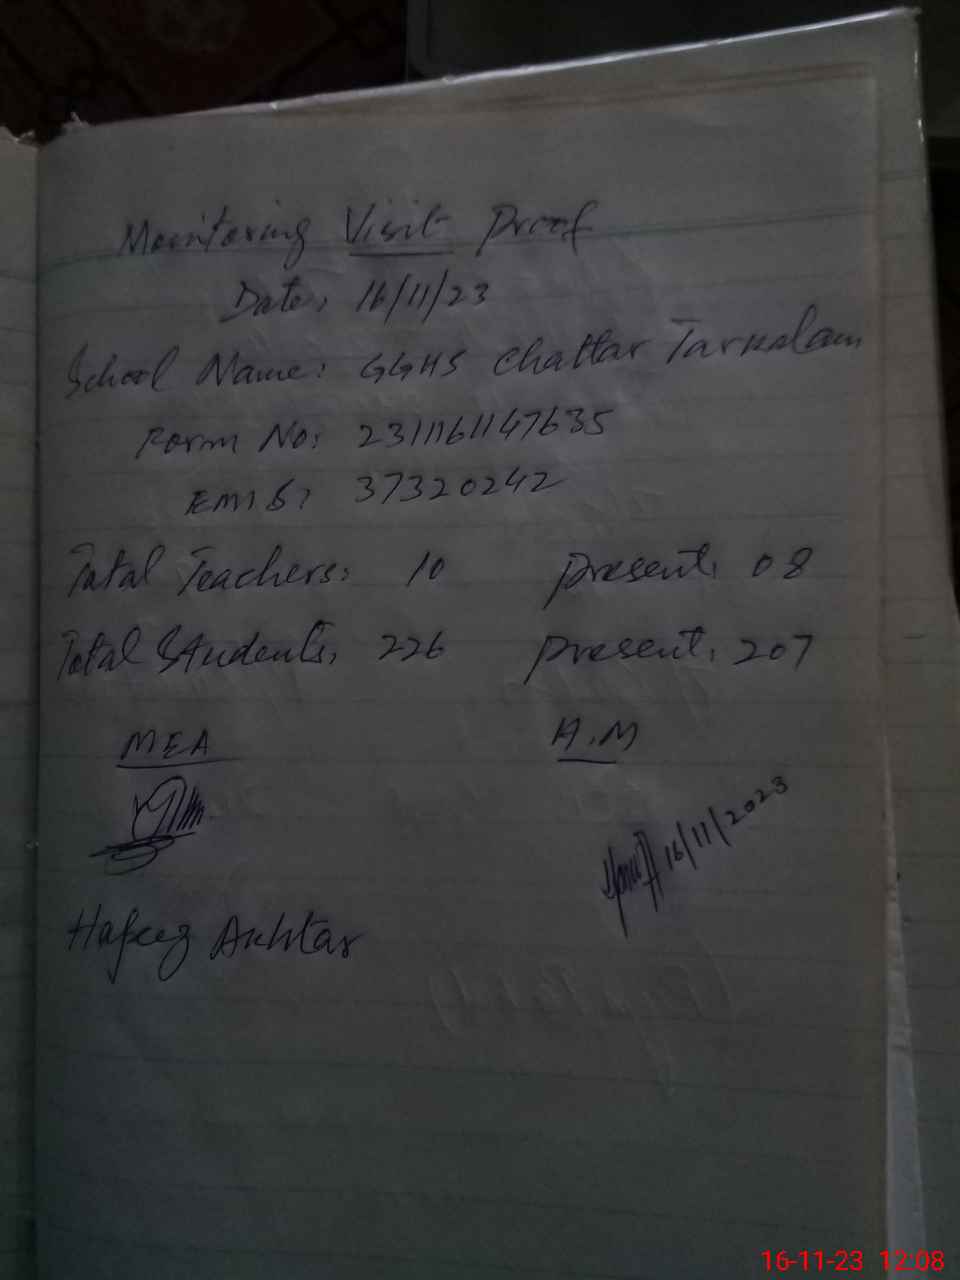 Monitoring Visit Proof
Date: 16/11/23
School Name: GGHS Chattar
Form No: 2311161147635
EMIS: 37320242
Total Teachers: 10 present: 08
Total Students: 226 present: 207
MEA A.M
16/11/2023
Hafeez Akhtar
16-11-23 12:08